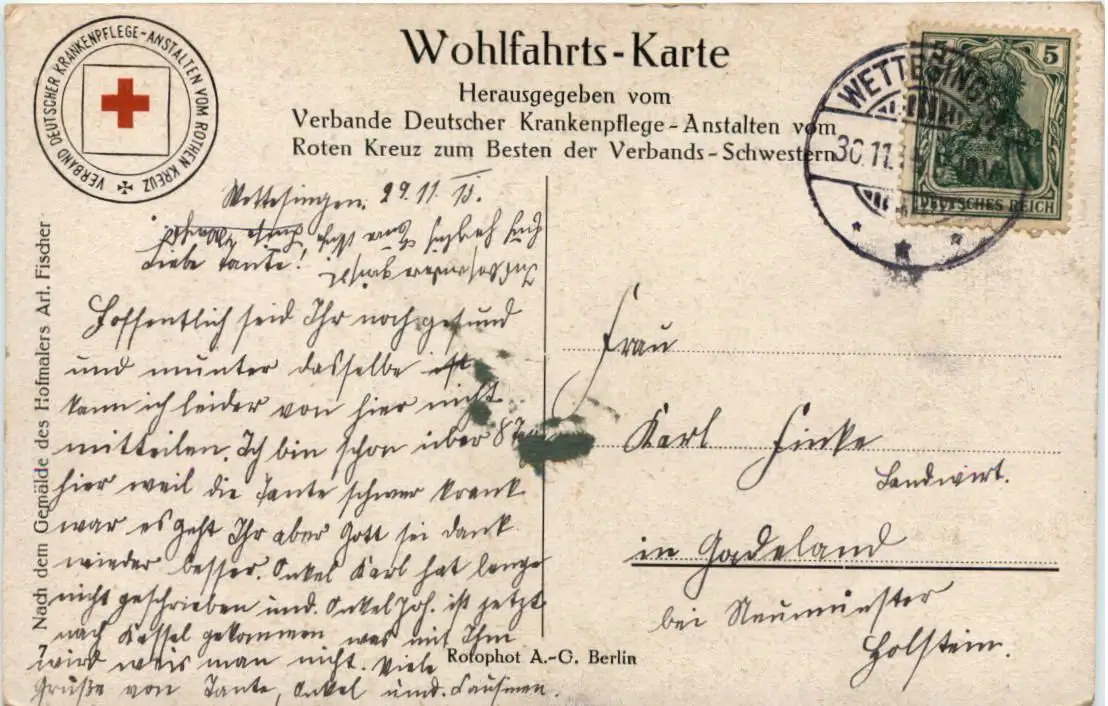 VERBAND DEUTSCHER KRANKENPFLEGE-ANSTALTEN VOM ROTHEN KREUZ
Wohlfahrts-Karte
Herausgegeben vom
Verbande Deutscher Krankenpflege-Anstalten vom
Roten Kreuz zum Besten der Verbands-Schwestern
5
DEUTSCHES REICH
WETTESING
30.11.
Wettesingen. 29.11.15.
Liebe Tante!
Hoffentlich seid Ihr noch gesund
und munter dasselbe ist
kann ich leider von hier nicht
mitteilen. Ich bin schon über 8
hier weil die Tante schwer krank
war es geht Ihr aber Gott sei dank
wieder besser. Onkel Karl hat lange
nicht geschrieben und. Onkel Joh. ist jetzt
nach Kassel gekommen was mit Ihm
wird weis man nicht. Viele
Grüße von Tante, Onkel und.
Frau
Karl Finke
Landwirt.
in Gadeland
bei Neumünster
Holstein.
Nach dem Gemälde des Hofmalers Art. Fischer
7
Rotophot A.-G. Berlin